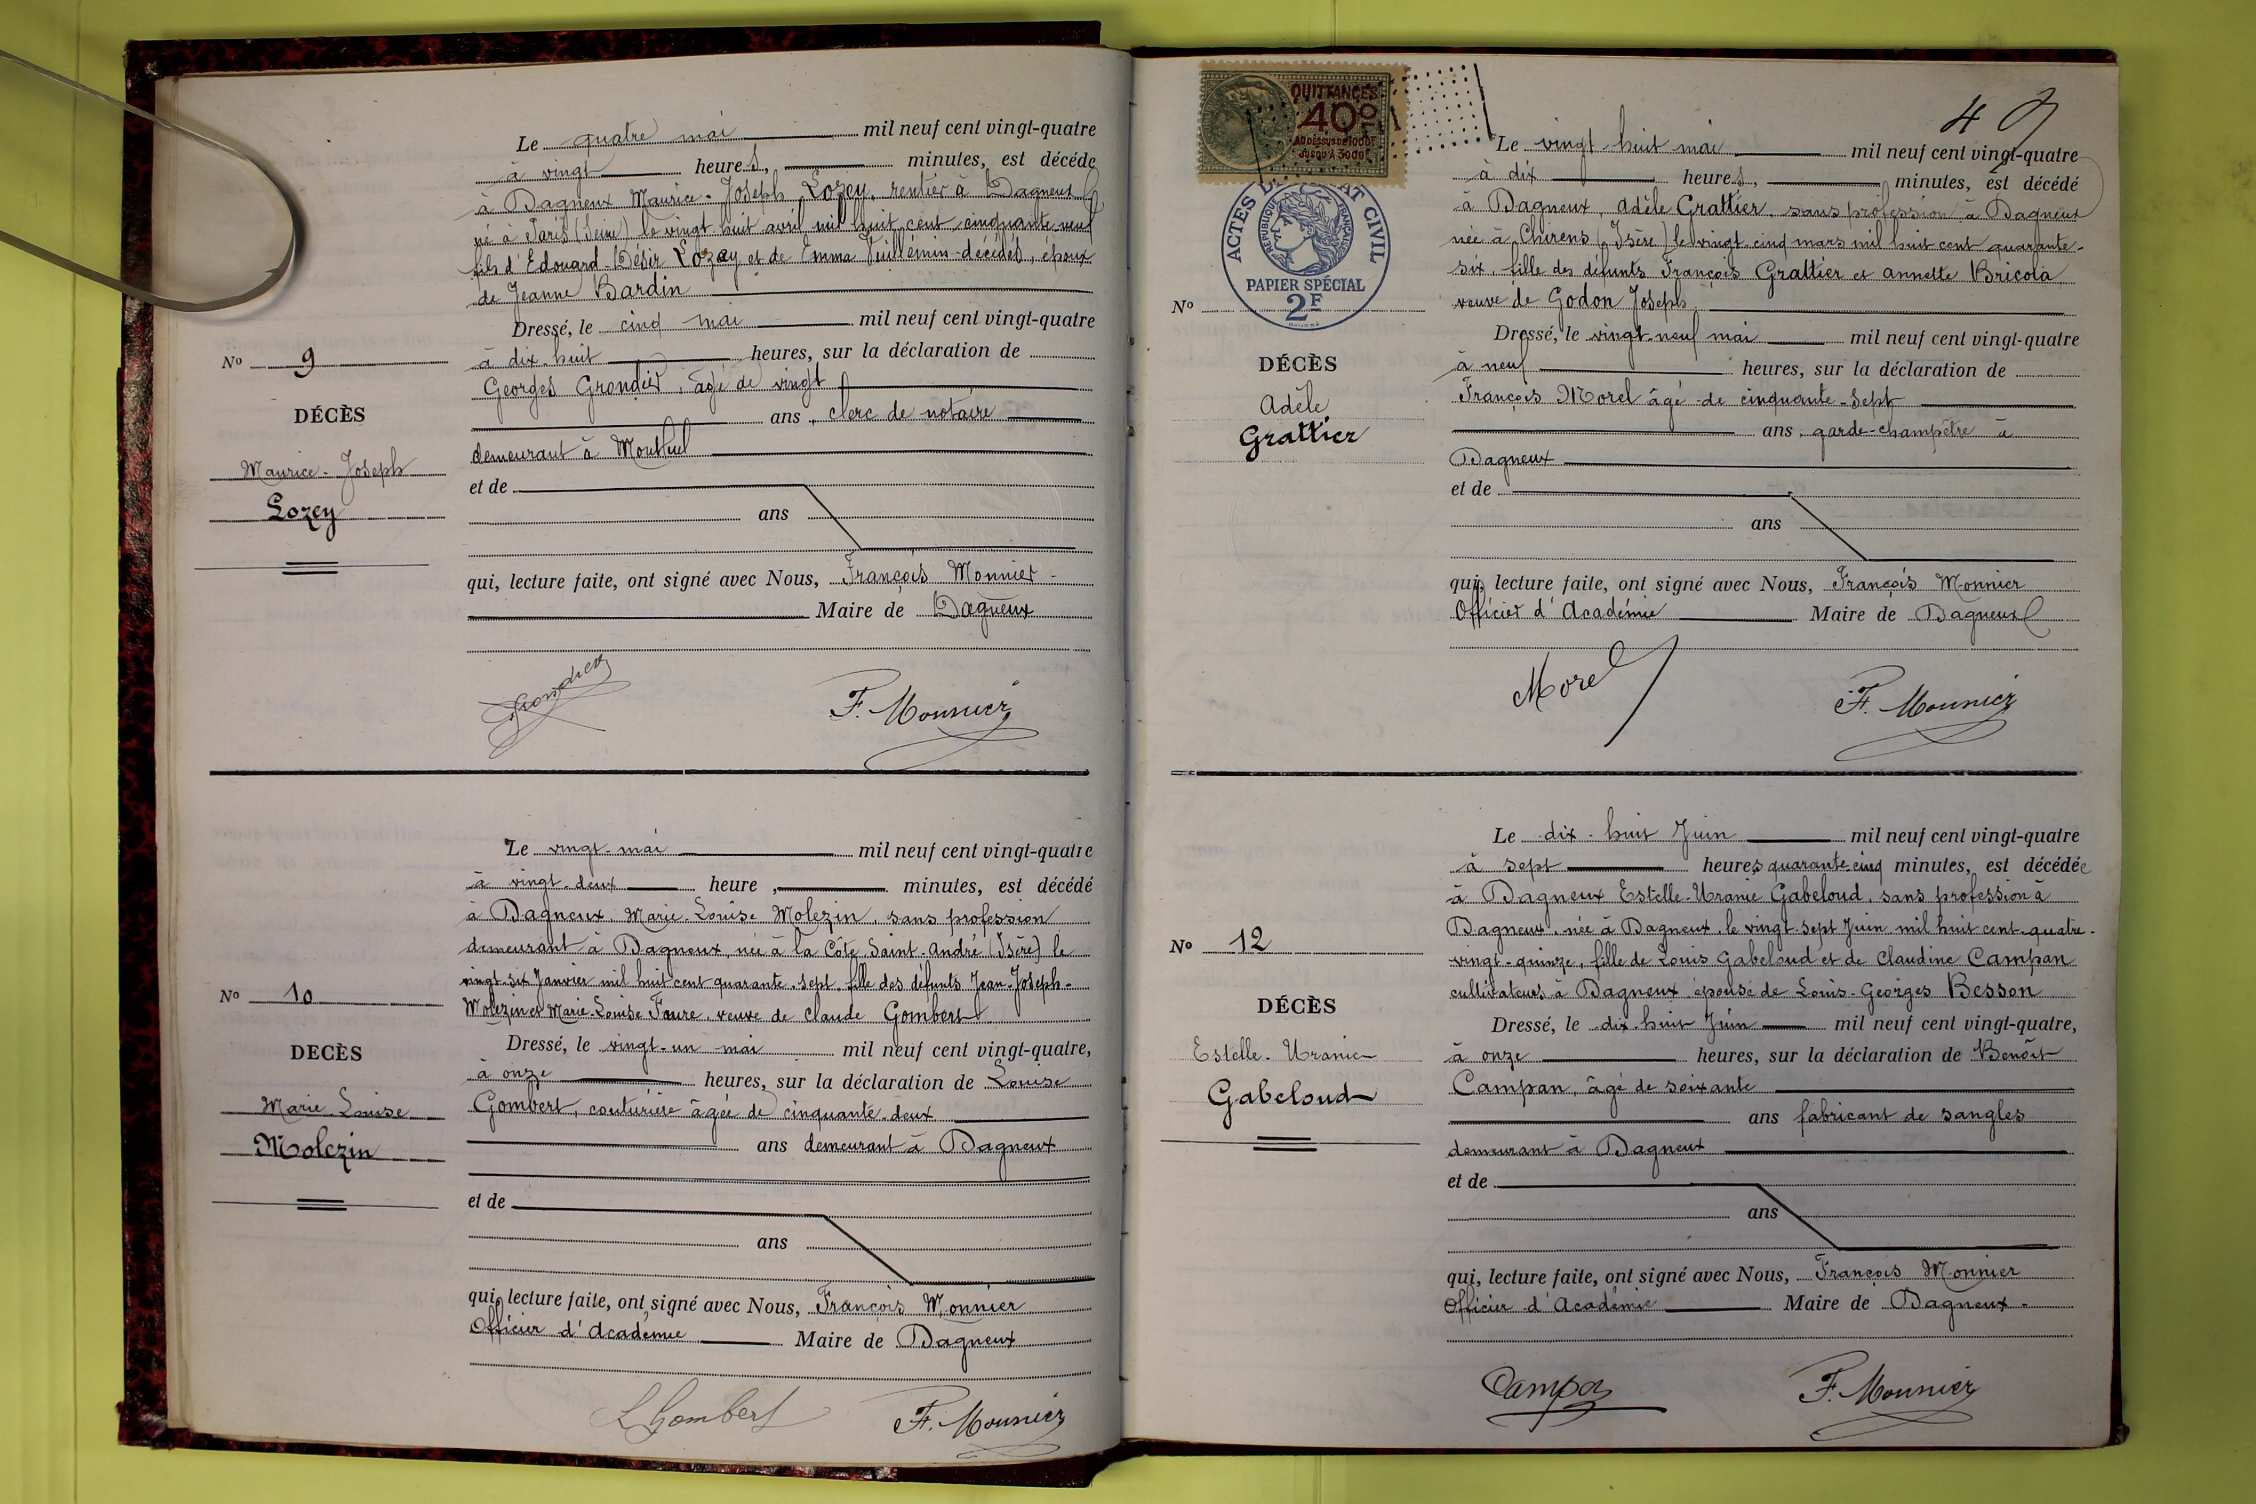 Le quatre mai mil neuf cent vingt-quatre
à vingt heures, minutes, est décédé
à Dagneux Maurice-Joseph Lozey, rentier à Dagneux
né à Paris (Seine) le vingt huit avril mil huit cent cinquante neuf
fils d'Edouard-Désir Lozey et de Emma Vuillemin décédés, époux
de Jeanne Bardin
Dressé, le cinq mai mil neuf cent vingt-quatre
à dix-huit heures, sur la déclaration de
Georges Grondier, âgé de vingt
ans, clerc de notaire
demeurant à Montluel
et de
ans
qui, lecture faite, ont signé avec Nous, François Monnier
Maire de Dagneux
No 9
DÉCÈS
Maurice-Joseph
Lozey
F. Monnier
Le vingt-mai mil neuf cent vingt-quatre
à vingt-deux heure, minutes, est décédé
à Dagneux, Marie-Louise Molezin, sans profession
demeurant à Dagneux, née à la Côte Saint-André (Isère) le
vingt-six Janvier mil huit cent quarante-sept, fille des défunts Jean-Joseph-
Molezin et Marie-Louise Faure, veuve de Claude Gombert
Dressé, le vingt-un mai mil neuf cent vingt-quatre,
à onze heures, sur la déclaration de Louise
Gombert, couturière âgée de cinquante-deux
ans demeurant à Dagneux
et de
ans
qui, lecture faite, ont signé avec Nous, François Monnier
Officier d'Académie Maire de Dagneux
No 10
DECÈS
Marie-Louise
Molezin
L Gombert F. Monnier
4
QUITTANCES
40c
AU DESSUS DE 1000F
JUSQU'A 3000F
ACTES DE L'ETAT CIVIL
REPUBLIQUE FRANÇAISE
PAPIER SPÉCIAL
2F
Le vingt-huit mai mil neuf cent vingt-quatre
à dix heures, minutes, est décédé
à Dagneux, Adèle Grattier, sans profession à Dagneux
née à Chirens (Isère) le vingt-cinq mars mil huit cent quarante-
six, fille des défunts François Grattier et Annette Bricola
veuve de Godon Joseph
Dressé, le vingt-neuf mai mil neuf cent vingt-quatre
à neuf heures, sur la déclaration de
François Morel âgé de cinquante-sept
ans, garde-champêtre à
Dagneux
et de
ans
qui, lecture faite, ont signé avec Nous, François Monnier
Officier d'Académie Maire de Dagneux
No
DÉCÈS
Adèle
Grattier
Morel F. Monnier
Le dix-huit Juin mil neuf cent vingt-quatre
à sept heures quarante-cinq minutes, est décédée
à Dagneux Estelle-Uranie Gabeloud, sans profession à
Dagneux, née à Dagneux, le vingt-sept Juin mil huit cent quatre-
vingt-quinze, fille de Louis Gabeloud et de Claudine Campan
cultivateurs à Dagneux épouse de Louis-Georges Besson
Dressé, le dix-huit Juin mil neuf cent vingt-quatre,
à onze heures, sur la déclaration de Benoît
Campan, âgé de soixante
ans fabricant de sangles
demeurant à Dagneux
et de
ans
qui, lecture faite, ont signé avec Nous, François Monnier
Officier d'Académie Maire de Dagneux
No 12
DÉCÈS
Estelle-Uranie
Gabeloud
Campan F. Monnier